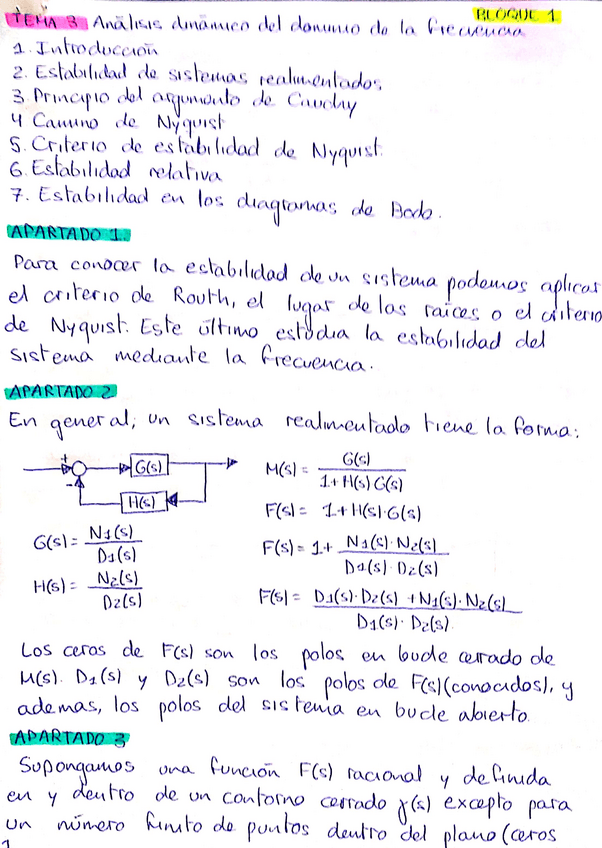 BLOQUE 1
TEMA 3 Análisis dinámico del dominio de la frecuencia
1. Introducción
2. Estabilidad de sistemas realimentados.
3. Principio del argumento de Cauchy
4 Camino de Nyquist
5. Criterio de estabilidad de Nyquist.
6. Estabilidad relativa
7. Estabilidad en los diagramas de Bode.
APARTADO 1.
Para conocer la estabilidad de un sistema podemos aplicar
el criterio de Routh, el lugar de las raíces o el criterio
de Nyquist. Este último estudia la estabilidad del
sistema mediante la frecuencia.
APARTADO 2
En general, un sistema realimentado tiene la forma:
+ - G(s) H(s)
M(s) = G(s) / 1+H(s)G(s)
F(s) = 1+H(s)·G(s)
G(s) = N1(s) / D1(s)
F(s) = 1 + N1(s)·N2(s) / D1(s)·D2(s)
H(s) = N2(s) / D2(s)
F(s) = D1(s)·D2(s) + N1(s)·N2(s) / D1(s)·D2(s)
Los ceros de F(s) son los polos en bucle cerrado de
M(s). D1(s) y D2(s) son los polos de F(s) (conocidos), y
ademas, los polos del sistema en bucle abierto.
APARTADO 3
Supongamos una función F(s) racional y definida
en y dentro de un contorno cerrado γ(s) excepto para
un número finito de puntos dentro del plano (ceros
1